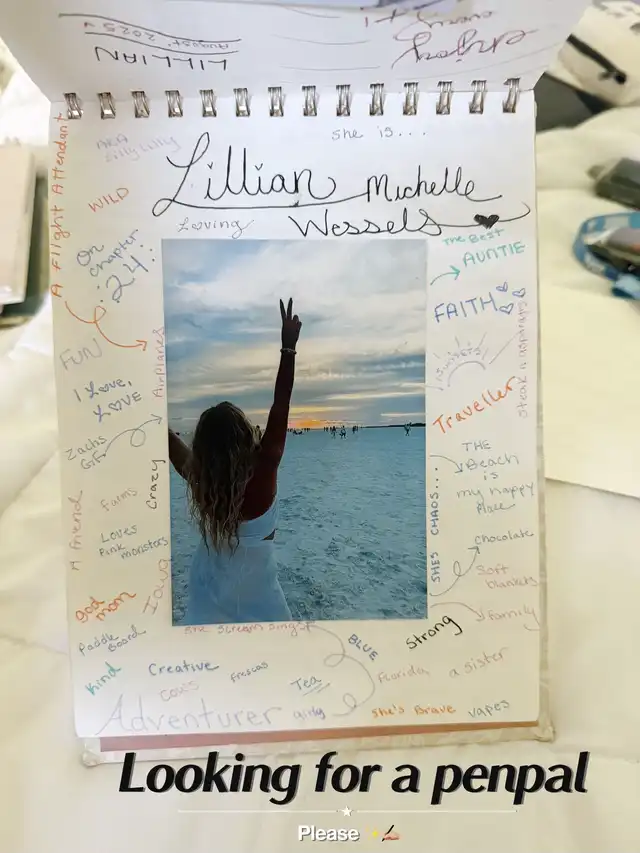 enjoy
LILLIAN
August 2025
she is...
AKA
LillyLilly
Lillian Michelle
Wessels
Loving
A Flight Attendant
WILD
On
chapter
24:
FUN
Airplanes
I Love,
LOVE
Zachs
GF
Crazy
A friend
Farms
Loves
Pink monsters
Iowa
god
mom
Paddle
Board
Kind
Creative
Cows
Frescas
Adventurer
Tea
she scream sings
BLUE
Strong
Florida
a sister
she's Brave
vapes
The Best
AUNTIE
FAITH
SUNSETS
steak n asparagus
Traveller
THE
Beach
is
my happy
Place
SHES CHAOS...
Chocolate
Soft
blankets
family
Looking for a penpal
Please